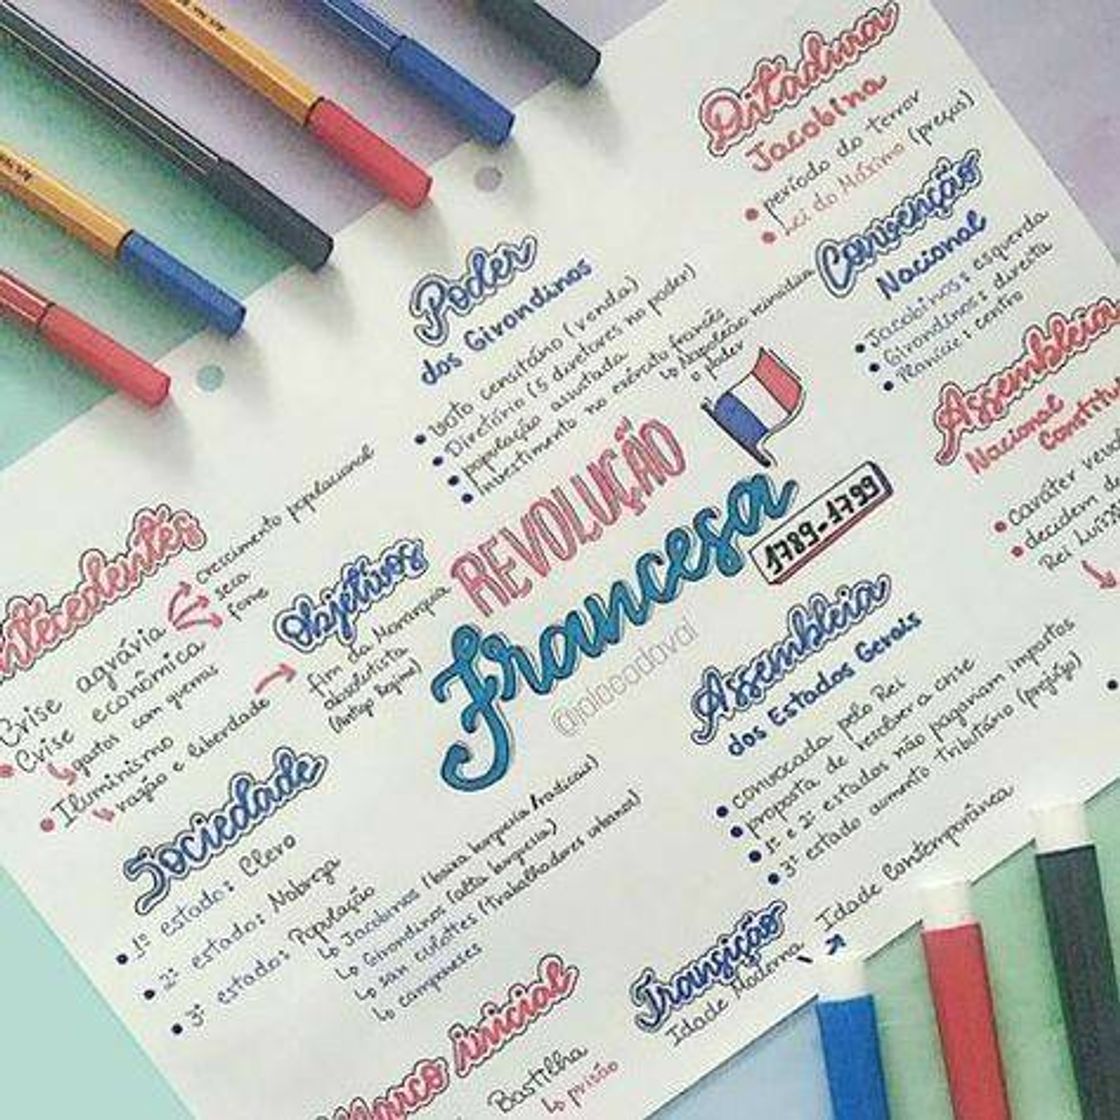 Ditadura
Jacobina
• período do terror
• Lei do Máximo (preços)
Convenção
Nacional
• Jacobinos: esquerda
• Girondinos: direita
• Planície: centro
Assembleia
Nacional
• caráter
• decidem
Rei Luís
Poder
dos Girondinos
• voto censitário (renda)
• Diretório (5 diretores no poder)
• população assustada
• investimento no exército francês
↳ Napoleão reivindica
o poder
REVOLUÇÃO
Francesa
1789-1799
Antecedentes
Crise agrária
crescimento populacional
seca
fome
• Crise econômica
↳ gastos com guerras
• Iluminismo
↳ razão e liberdade
Objetivos
fim da Monarquia
absolutista
(Antigo Regime)
Sociedade
• 1º estado: Clero
• 2º estado: Nobreza
• 3º estado: População
↳ Jacobinos (baixa burguesia/radicais)
↳ Girondinos (alta burguesia)
↳ san culottes (trabalhadores urbanos)
↳ camponeses
Assembleia
dos Estados Gerais
• convocada pelo Rei
• proposta de resolver a crise
• 1º e 2º estados não pagariam impostos
• 3º estado aumento tributário (prejuízo)
Transição
Idade Moderna
Idade Contemporânea
Marco inicial
Bastilha
↳ prisão